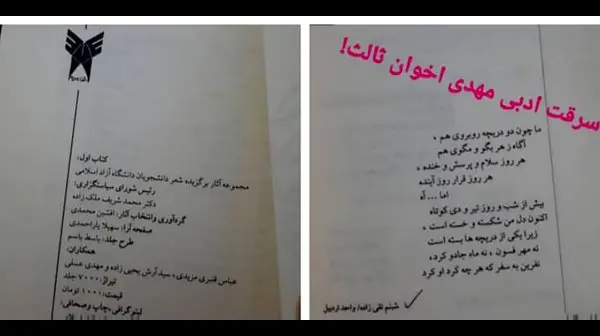 کتاب اول:
مجموعه آثار برگزیده شعر دانشجویان دانشگاه آزاد اسلامی
رئیس شورای سیاستگزاری:
دکتر محمد شریف ملک زاده
گردآوری وانتخاب آثار: افشین محمدی
صفحه آرا: سهیلا یاراحمدی
طرح جلد: باسط باسم
همکاران:
عباس قنبری مزیدی، سید آرش یحیی زاده و مهدی عسلی
تیراژ: ۷۰۰۰ جلد
قیمت: ۱۰۰۱ تومان
لیتوگرافی، چاپ وصحافی:
سرقت ادبی مهدی اخوان ثالث!
ما چون دو دریچه روبروی هم ،
آگاه ز هر بگو و مگوی هم
هر روز سلام و پرسش و خنده ،
هر روز قرار روز آینده
اما ... آه
بیش از شب و روز تیر و دی کوتاه
اکنون دل من شکسته و خسته است ،
زیرا یکی از دریچه ها بسته است
نه مهر فسون ، نه ماه جادو کرد ،
نفرین به سفر که هر چه کرد او کرد
شبنم تقی زاده/ واحد اردبیل